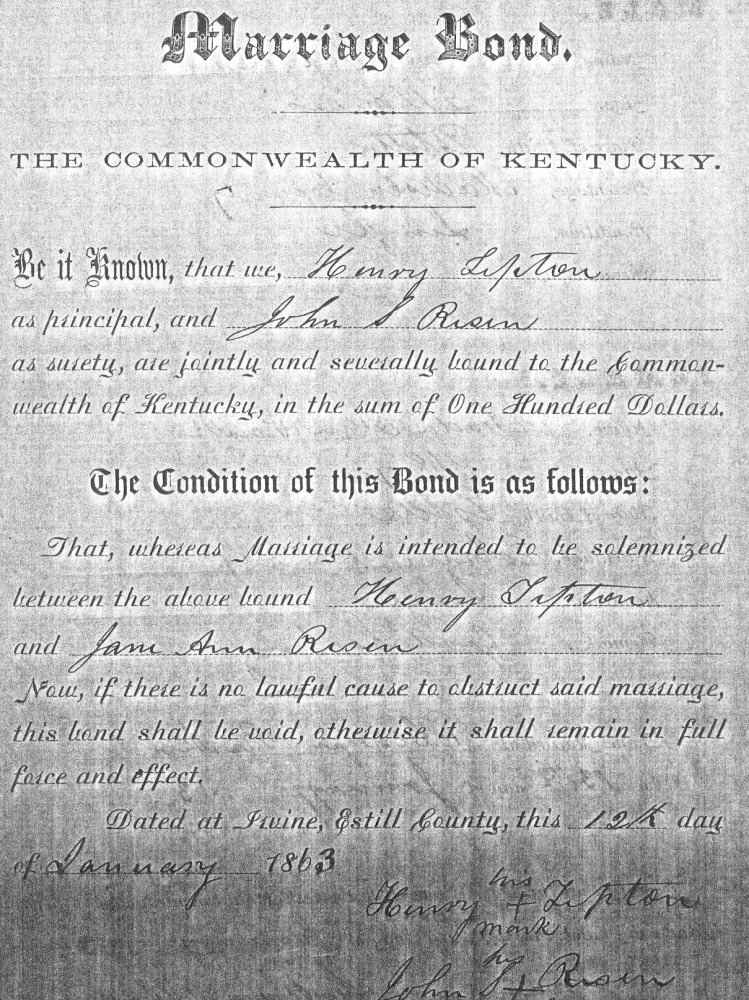 Marriage Bond.
THE COMMONWEALTH OF KENTUCKY.
Be it Known, that we, Henry Tipton
as principal, and John S Risen
as surety, are jointly and severally bound to the Common-
wealth of Kentucky, in the sum of One Hundred Dollars.
The Condition of this Bond is as follows:
That, whereas Marriage is intended to be solemnized
between the above bound Henry Tipton
and Jane Ann Risen
Now, if there is no lawful cause to obstruct said marriage,
this bond shall be void, otherwise it shall remain in full
force and effect.
Dated at Irvine, Estill County, this 12th day
of January 1863
his
Henry + Tipton
mark
his
John S + Risen